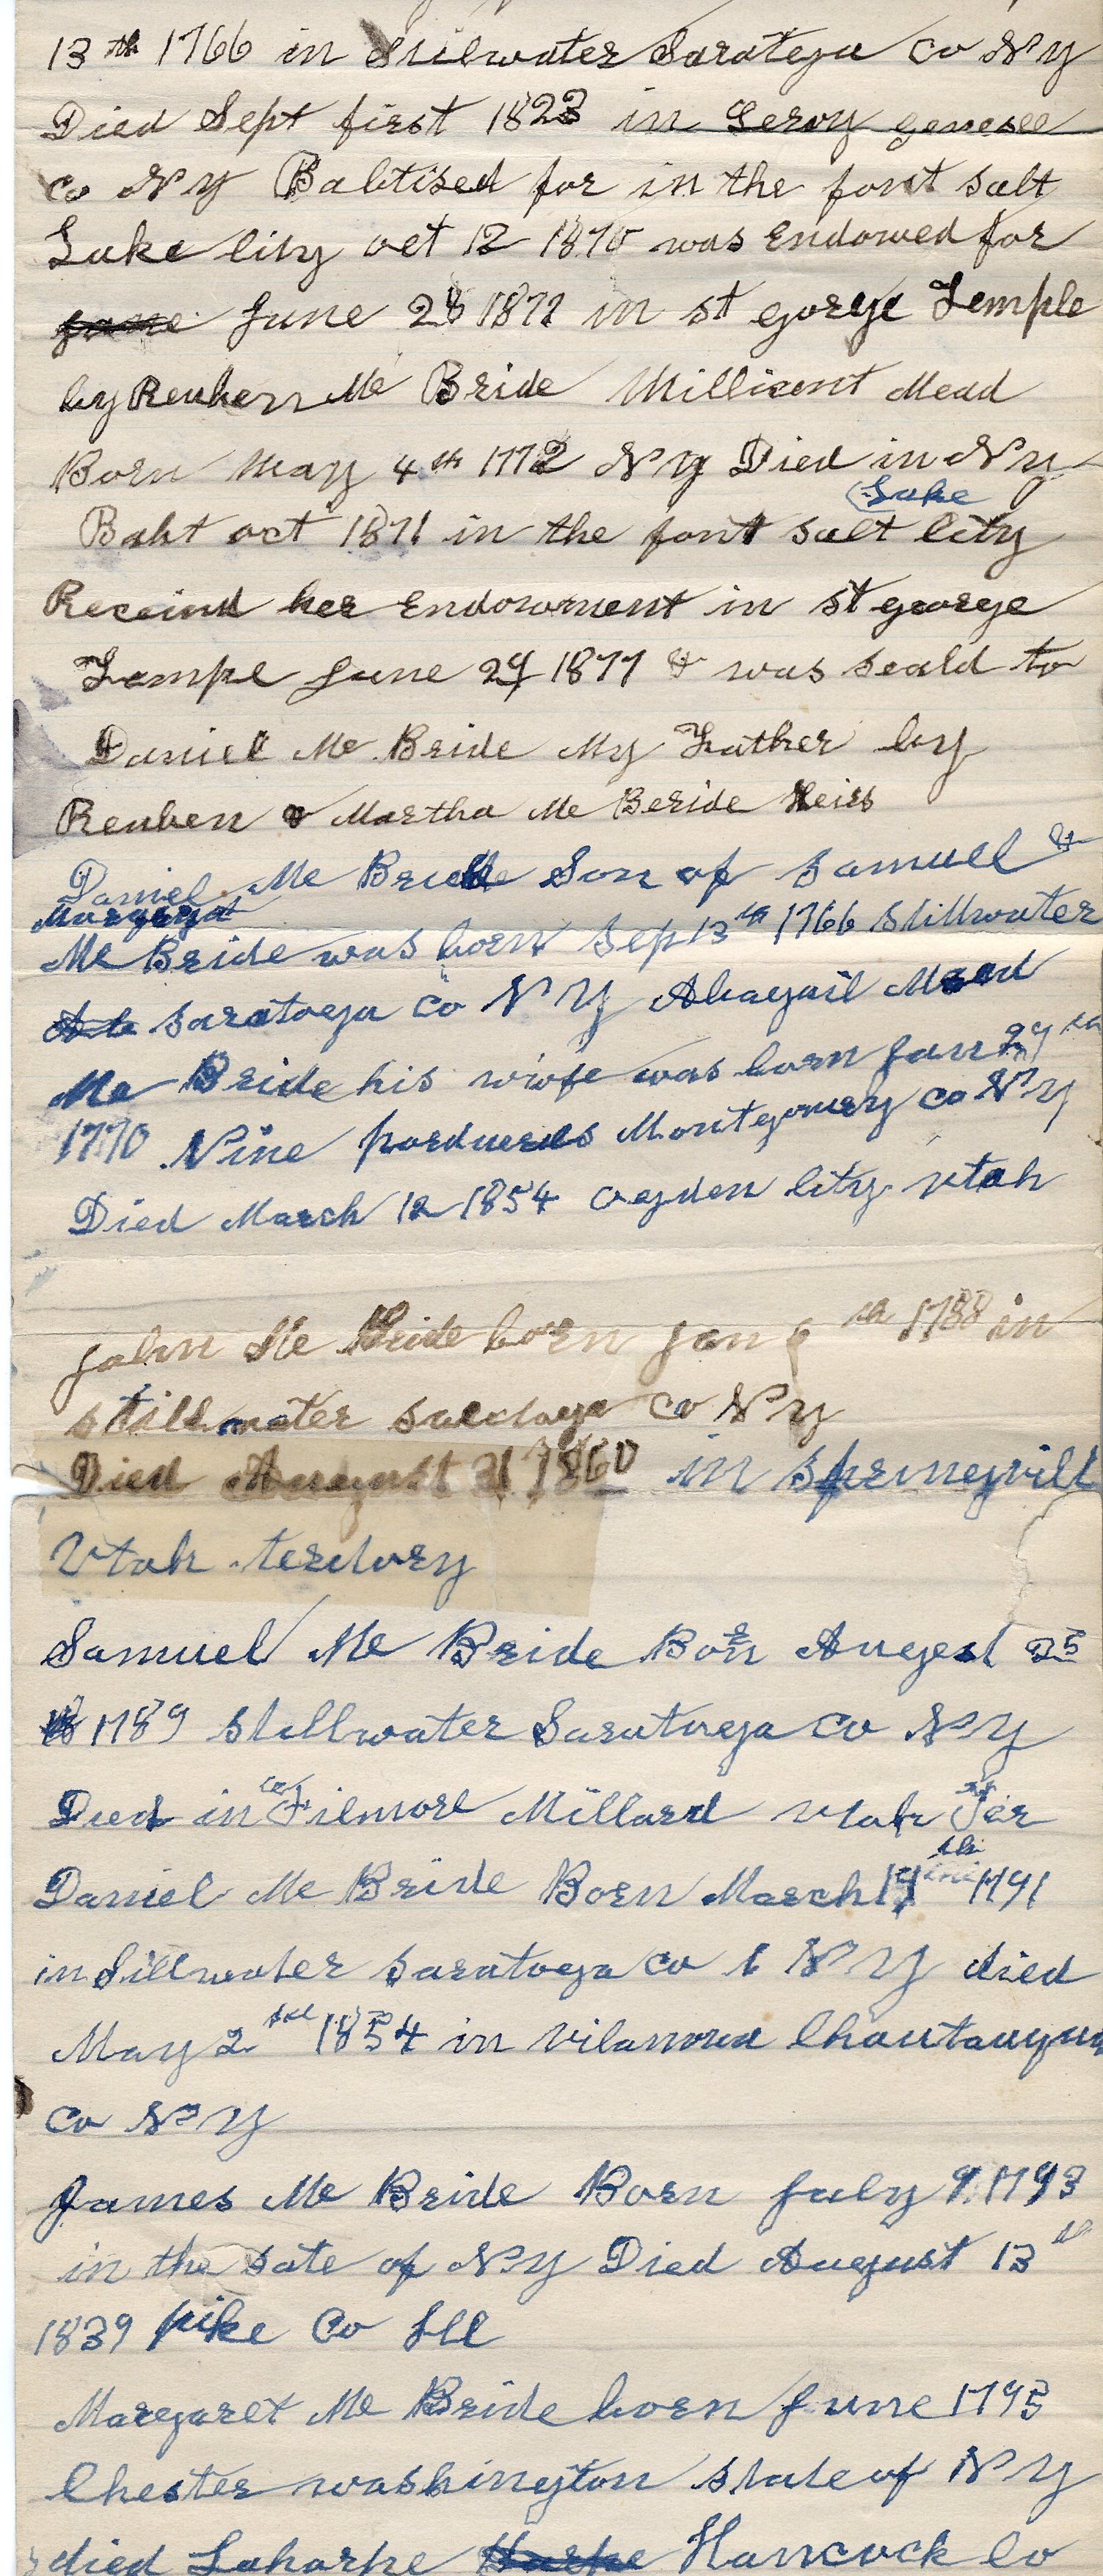 13th 1766 in Stilwater Saratoga Co N Y
Died Sept first 1823 in Leroy genesee
Co N Y Babtised for in the font Salt
Lake City oct 12 1870 was Endowed for
June 28 1877 in st gorge Temple
by Reuben Mc Bride Millisent Mead
Born may 4th 1772 N Y Died in N Y
Babt oct 1871 in the font salt Lake City
Receind her Endowment in st george
Tempe June 29 1877 & was seald to
Daniel Mc Bride My Father by
Reuben & Martha Mc Beride Heirs
Daniel Mc Bride Son of Samuell &
Margaret
Mc Bride was born Sep 13th 1766 Stillwater
Saratoga Co N Y Abagail Mead
Mc Bride his wife was born Jan 29th
1770 Nine Montgomery Co N Y
Died March 12 1854 ogden City utah
John Mc Bride born Jan 1788 in
stillwater Co N Y
Died August 21 1860 in springvill
Utah teretory
Samuel Mc Bride Born Augest 25
1789 stillwater Saratoga Co N Y
Died in Filmore Millard Utah Ter
Daniel Mc Bride Born March 19th 1791
in Sillwater Saratoga Co N Y died
May 2 1854 in Vilanova Chautauqua
Co N Y
James Mc Bride Born July 9 1793
in the sate of N Y Died August 13th
1839 pike Co Ill
Maregaret Mc Bride born June 1795
Chester washington state of N Y
died Laharpe Hancock Co